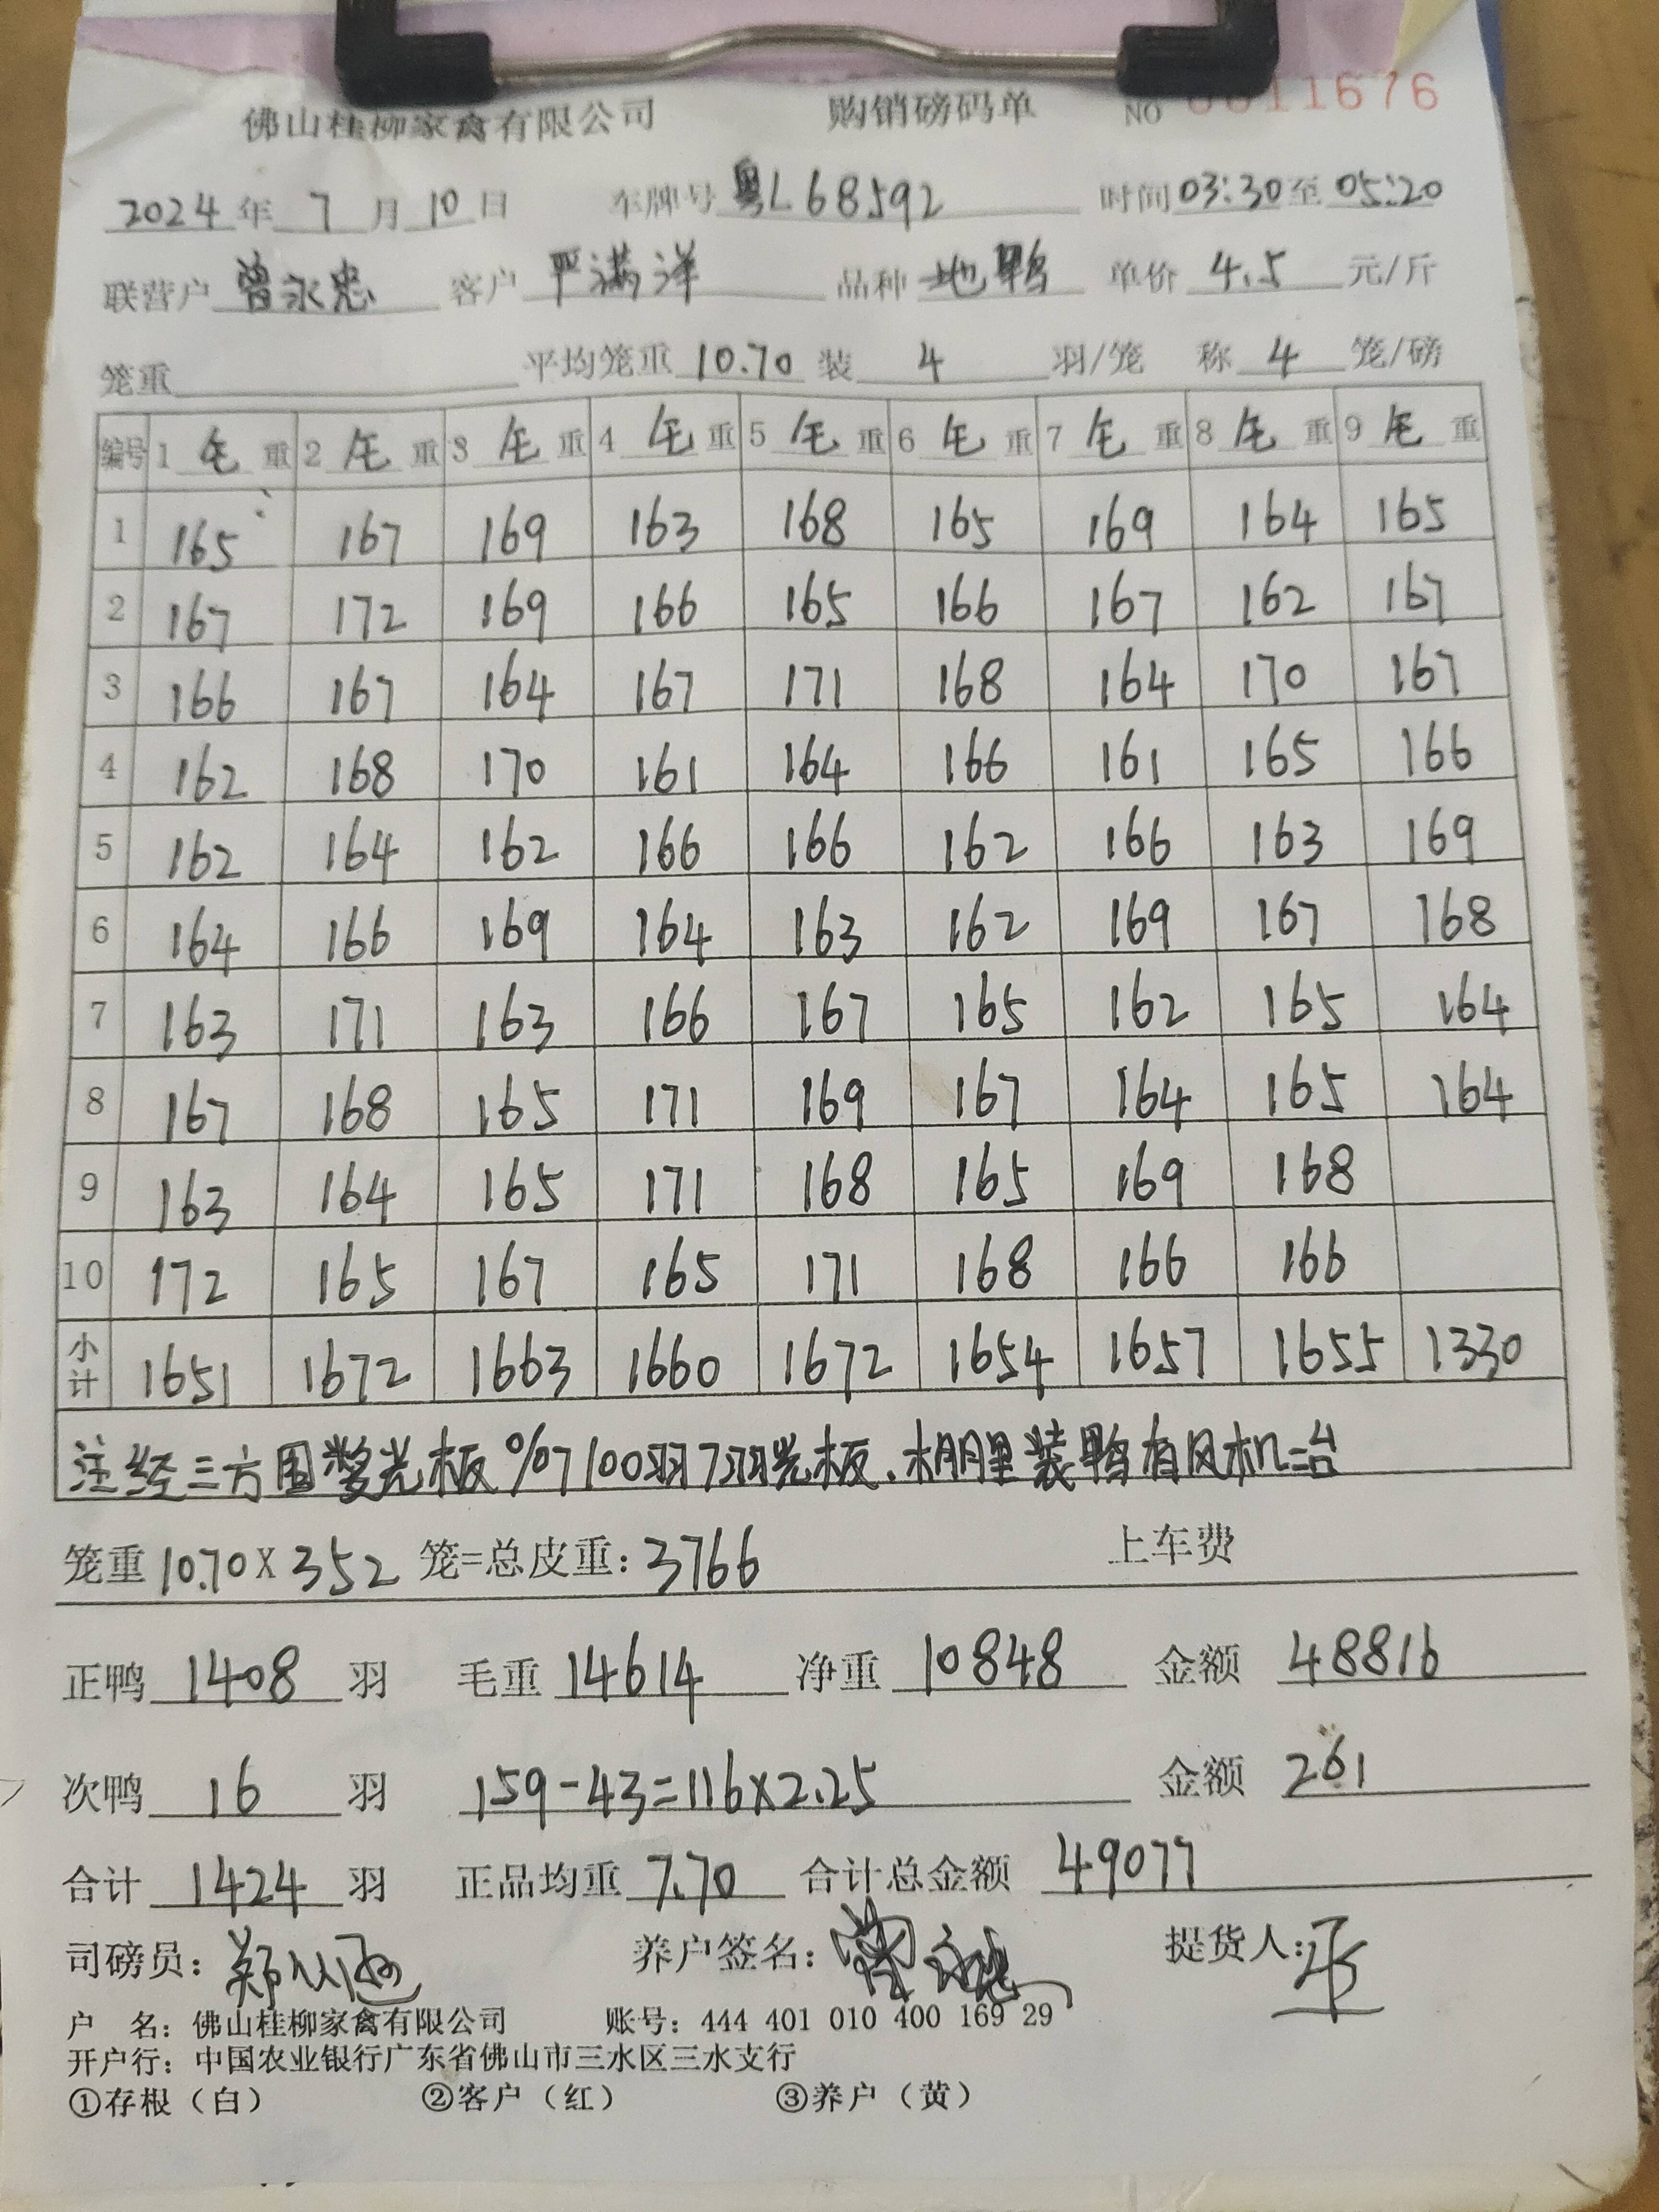 佛山桂柳家禽有限公司 购销磅码单 NO 0011676
2024年 7月10日 车牌号 粤L68592 时间 03:30至05:20
联营户 曾永忠 客户 严满洋 品种 地鸭 单价 4.5 元/斤
笼重 平均笼重 10.70 装 4 羽/笼 称 4 笼/磅
编号 1 毛 重 2 毛 重 3 毛 重 4 毛 重 5 毛 重 6 毛 重 7 毛 重 8 毛 重 9 毛 重
1 165 167 169 163 168 165 169 164 165
2 167 172 169 166 165 166 167 162 167
3 166 167 164 167 171 168 164 170 167
4 162 168 170 161 164 166 161 165 166
5 162 164 162 166 166 162 166 163 169
6 164 166 169 164 163 162 169 167 168
7 163 171 163 166 167 165 162 165 164
8 167 168 165 171 169 167 164 165 164
9 163 164 165 171 168 165 169 168
10 172 165 167 165 171 168 166 166
小计 1651 1672 1663 1660 1672 1654 1657 1655 1330
注经三方 光板%07 100羽7羽光板.木棚里装鸭有风机二台
笼重 10.70 X 352 笼=总皮重: 3766 上车费
正鸭 1408 羽 毛重 14614 净重 10848 金额 48816
次鸭 16 羽 159-43=116×2.25 金额 261
合计 1424 羽 正品均重 7.70 合计总金额 49077
司磅员: 养户签名: 提货人:
户 名: 佛山桂柳家禽有限公司 账号: 444 401 010 400 169 29
开户行: 中国农业银行广东省佛山市三水区三水支行
①存根(白) ②客户(红) ③养户(黄)